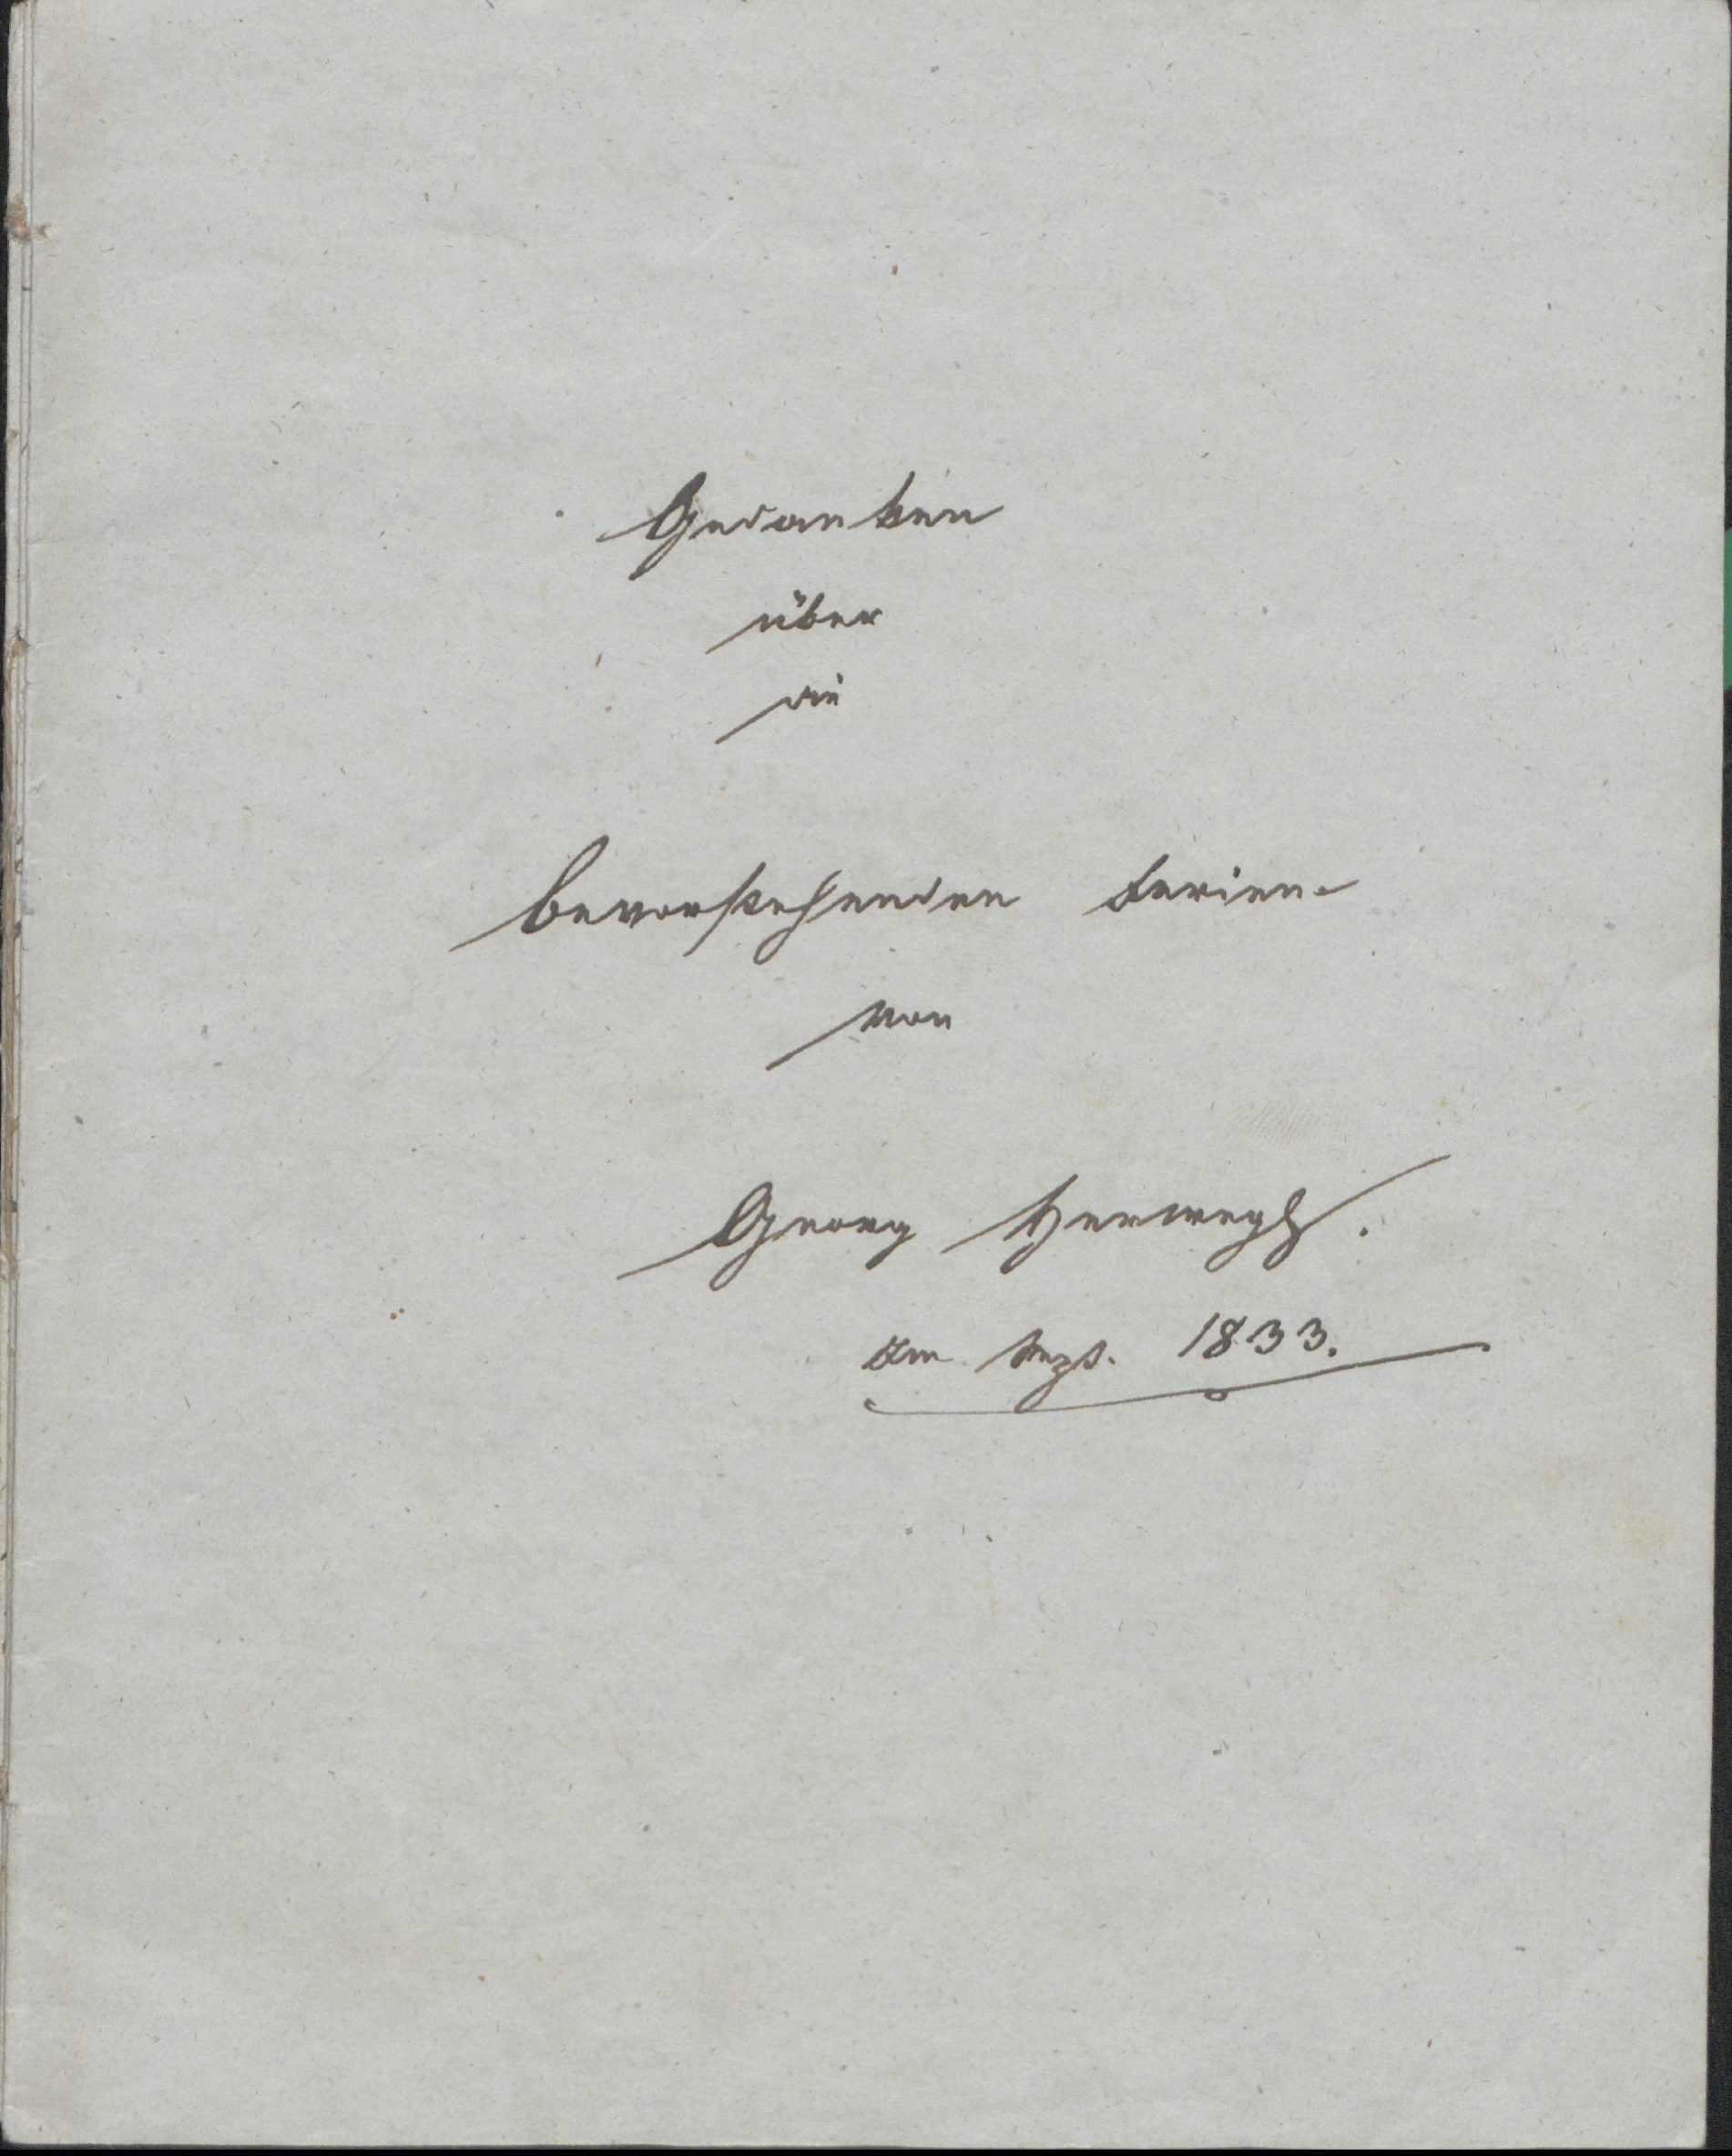 Gedanken
über
die
bevorstehenden Ferien
von
Georg Herwegh.
Im Sept. 1833.